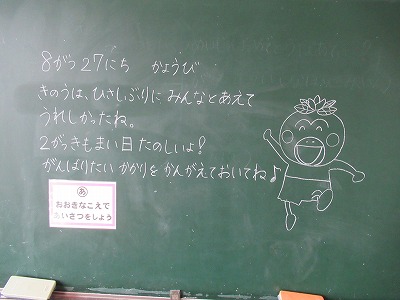 8がつ27にち　かようび
きのうは、ひさしぶりに みんなとあえて
うれしかったね。
2がっきもまい日 たのしいよ!
がんばりたい かかりを かんがえておいてね♪
あ
おおきなこえで
あいさつをしよう